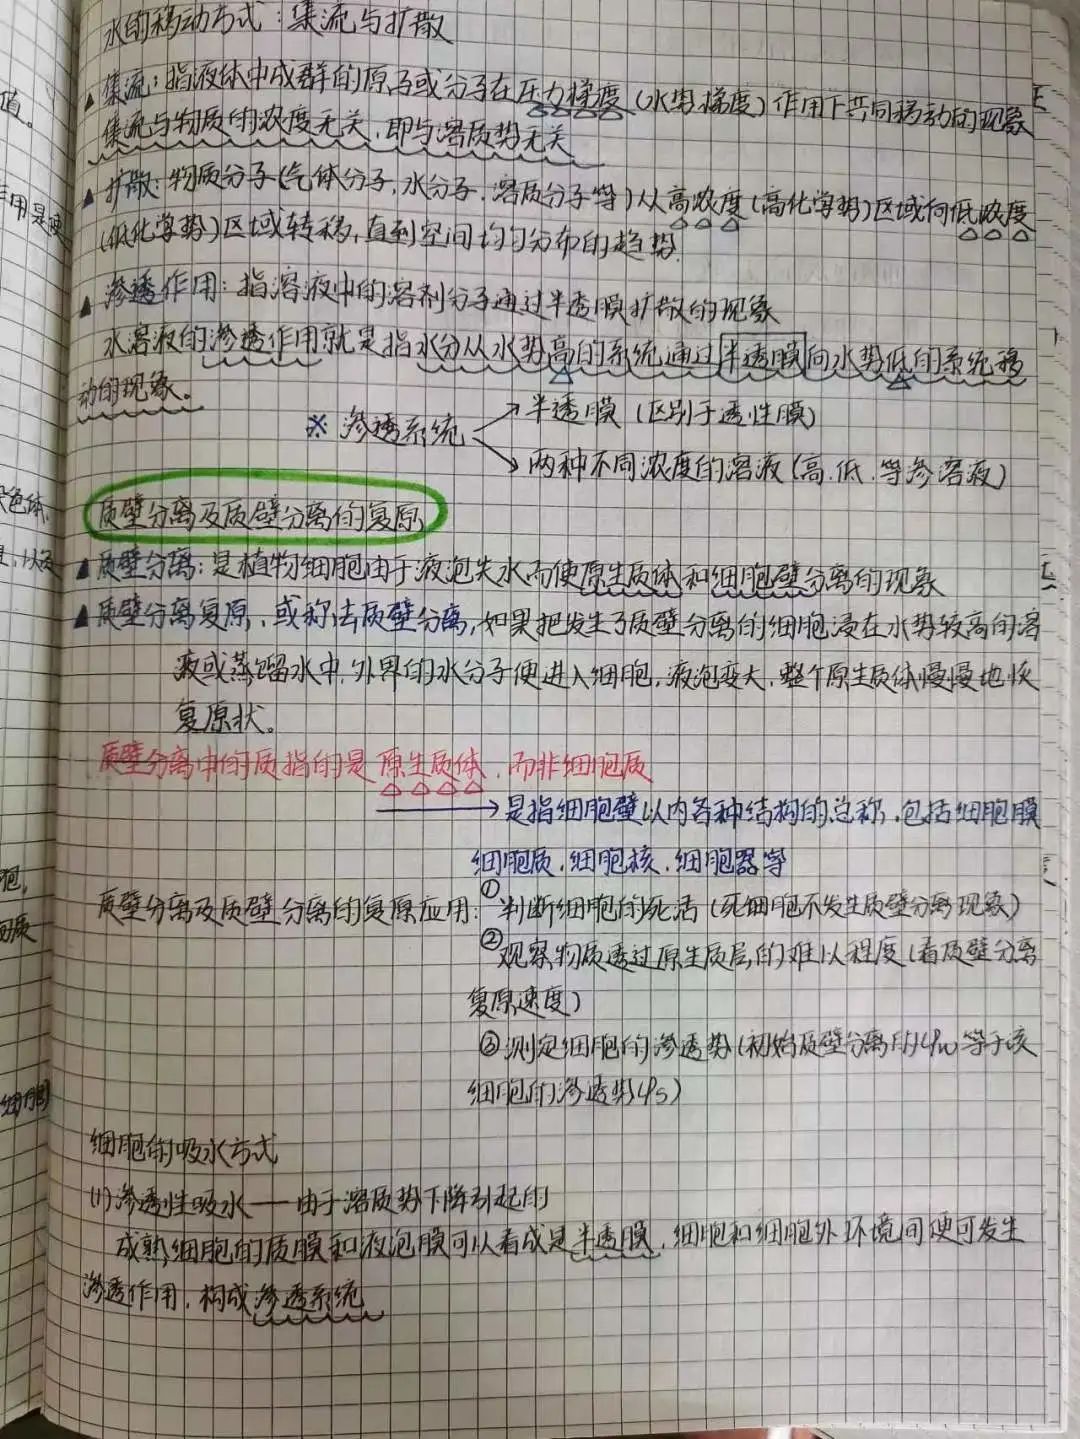 水的移动方式:集流与扩散
▲集流:指液体中成群的原子或分子在压力梯度(水势梯度)作用下共同移动的现象
集流与物质的浓度无关,即与溶质势无关
▲扩散:物质分子(气体分子,水分子,溶质分子等)从高浓度(高化学势)区域向低浓度
(低化学势)区域转移,直到空间均匀分布的趋势.
▲渗透作用:指溶液中的溶剂分子通过半透膜扩散的现象
水溶液的渗透作用就是指水分从水势高的系统通过半透膜向水势低的系统移
动的现象。
※ 渗透系统
半透膜(区别于透性膜)
两种不同浓度的溶液(高.低.等渗溶液)
质壁分离及质壁分离的复原
▲质壁分离:是植物细胞由于液泡失水而使原生质体和细胞壁分离的现象
▲质壁分离复原,或称去质壁分离,如果把发生了质壁分离的细胞浸在水势较高的溶
液或蒸馏水中,外界的水分子便进入细胞,液泡变大,整个原生质体慢慢地恢
复原状。
质壁分离中的质指的是原生质体,而非细胞质
是指细胞壁以内各种结构的总称,包括细胞膜
细胞质,细胞核,细胞器等
质壁分离及质壁分离的复原应用:①判断细胞的死活(死细胞不发生质壁分离现象)
②观察物质透过原生质层的难以程度(看质壁分离
复原速度)
③测定细胞的渗透势(初始质壁分离时ψw等于该
细胞的渗透势ψs)
细胞的吸水方式
(1)渗透性吸水——由于溶质势下降引起的
成熟细胞的质膜和液泡膜可以看成是半透膜,细胞和细胞外环境间便可发生
渗透作用,构成渗透系统
值。
作用是使
染色体,
细胞